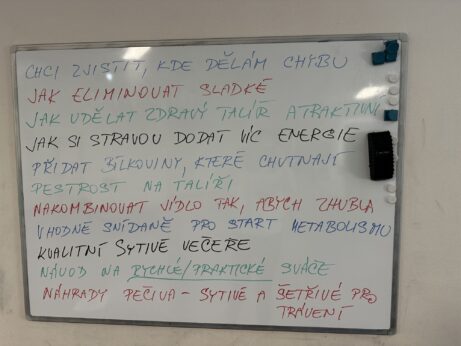 CHCI ZJISTIT, KDE DĚLÁM CHYBU
JAK ELIMINOVAT SLADKÉ
JAK UDĚLAT ZDRAVÝ TALÍŘ ATRAKTIVNÍ
JAK SI STRAVOU DODAT VÍC ENERGIE
PŘIDAT BÍLKOVINY, KTERÉ CHUTNAJÍ
PESTROST NA TALÍŘI
NAKOMBINOVAT JÍDLO TAK, ABYCH ZHUBLA
VHODNÉ SNÍDANĚ PRO START METABOLISMU
KVALITNÍ SYTIVÉ VEČEŘE
NÁVOD NA RYCHLÉ/PRAKTICKÉ SVAČE
NÁHRADY PEČIVA - SYTIVÉ A ŠETŘIVÉ PRO
TRÁVENÍ